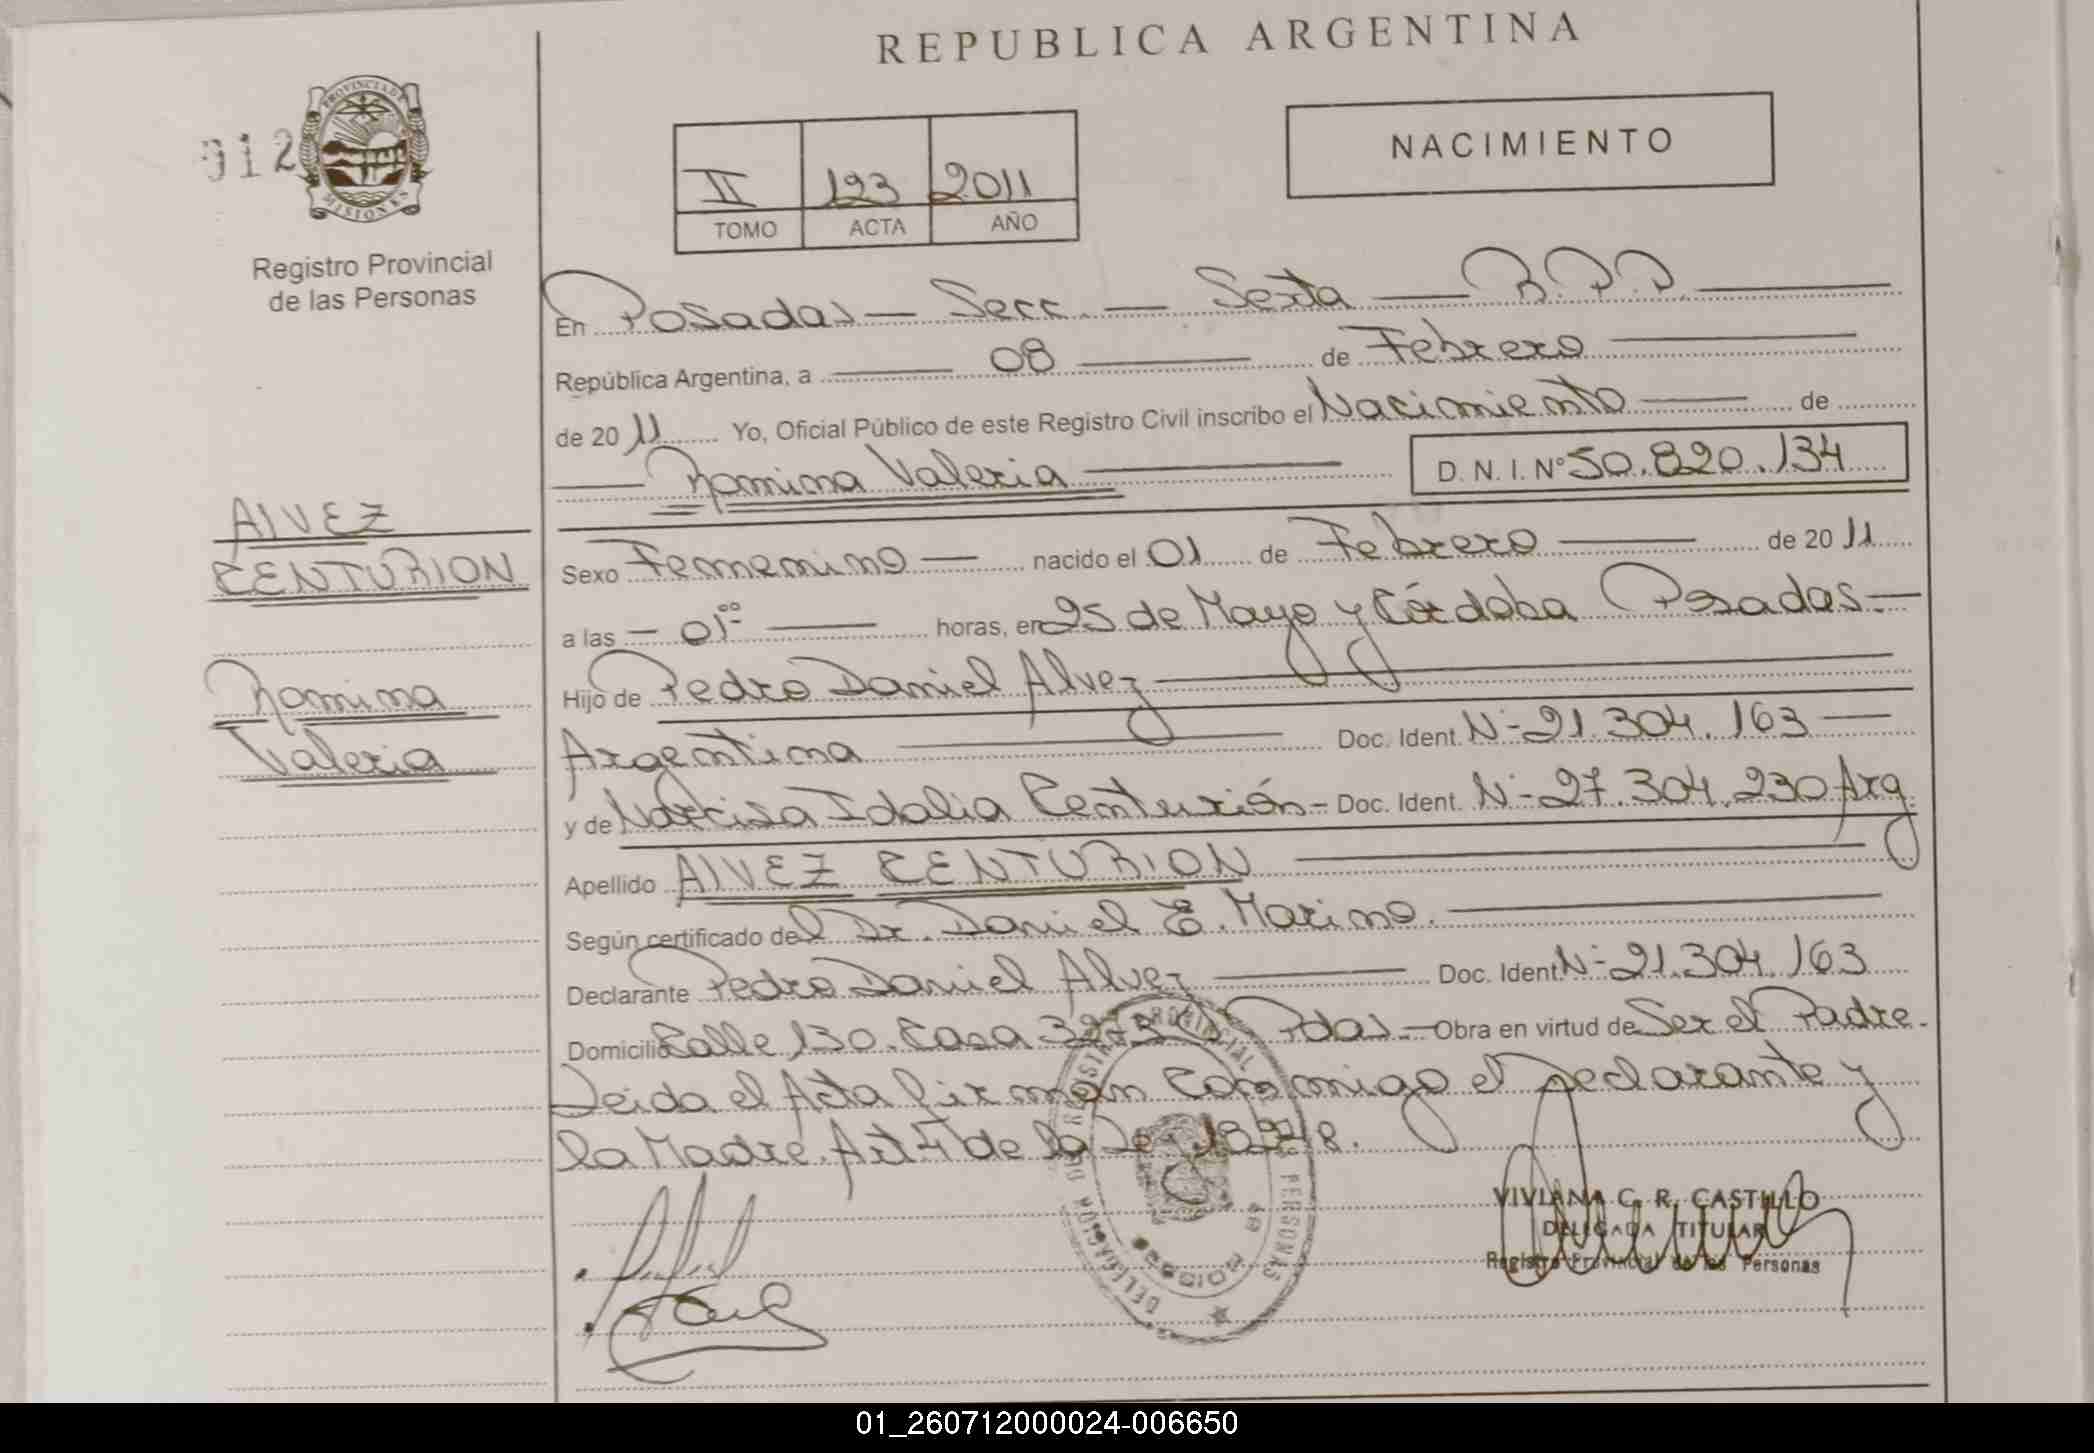 REPUBLICA ARGENTINA
PROVINCIA DE
MISIONES
912
Registro Provincial
de las Personas
II 123 2011
TOMO ACTA AÑO
NACIMIENTO
En Posadas — Secc. — Sexta — R.P.P. —
República Argentina, a — 08 — de Febrero —
de 20 11 Yo, Oficial Público de este Registro Civil inscribo el Nacimiento — de
— Romina Valeria — D. N. I. Nº 50.820.134
ALVEZ
CENTURION
Romina
Valeria
Sexo Femenino — nacido el 01 de Febrero — de 20 11
a las — 01:00 — horas, en 25 de Mayo y Córdoba Posadas.—
Hijo de Pedro Daniel Alvez —
Argentina — Doc. Ident. Nº 21.304.163 —
y de Narcisa Idalia Centurión - Doc. Ident. Nº 27.304.230 Arg.
Apellido ALVEZ CENTURION —
Según certificado del Dr. Daniel E. Marino. —
Declarante Pedro Daniel Alvez — Doc. Ident. Nº 21.304.163
Domicilio Calle 130. Casa 3273 Pdas.— Obra en virtud de Ser el Padre.
Leida el Acta firman conmigo el declarante y
la Madre. Art 4 de la
DELEGACION DEL REGISTRO PROVINCIAL PERSONAS
VIVIANA C. R. CASTILLO
DELEGADA TITULAR
Registro Provincial de las Personas
01_260712000024-006650